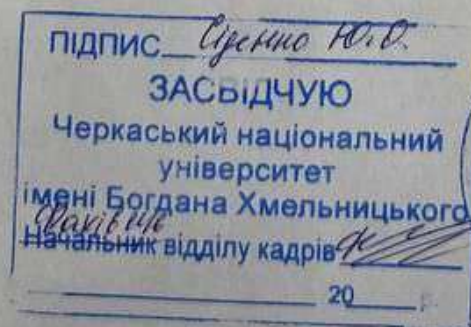 ПІДПИС Ю.О.
ЗАСВІДЧУЮ
Черкаський національний
університет
імені Богдана Хмельницького
Фахівець
Начальник відділу кадрів
20 р.